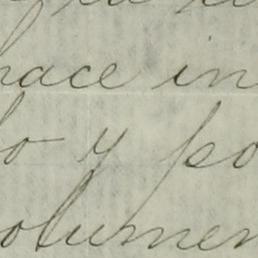 hace in
lo y po
olumen